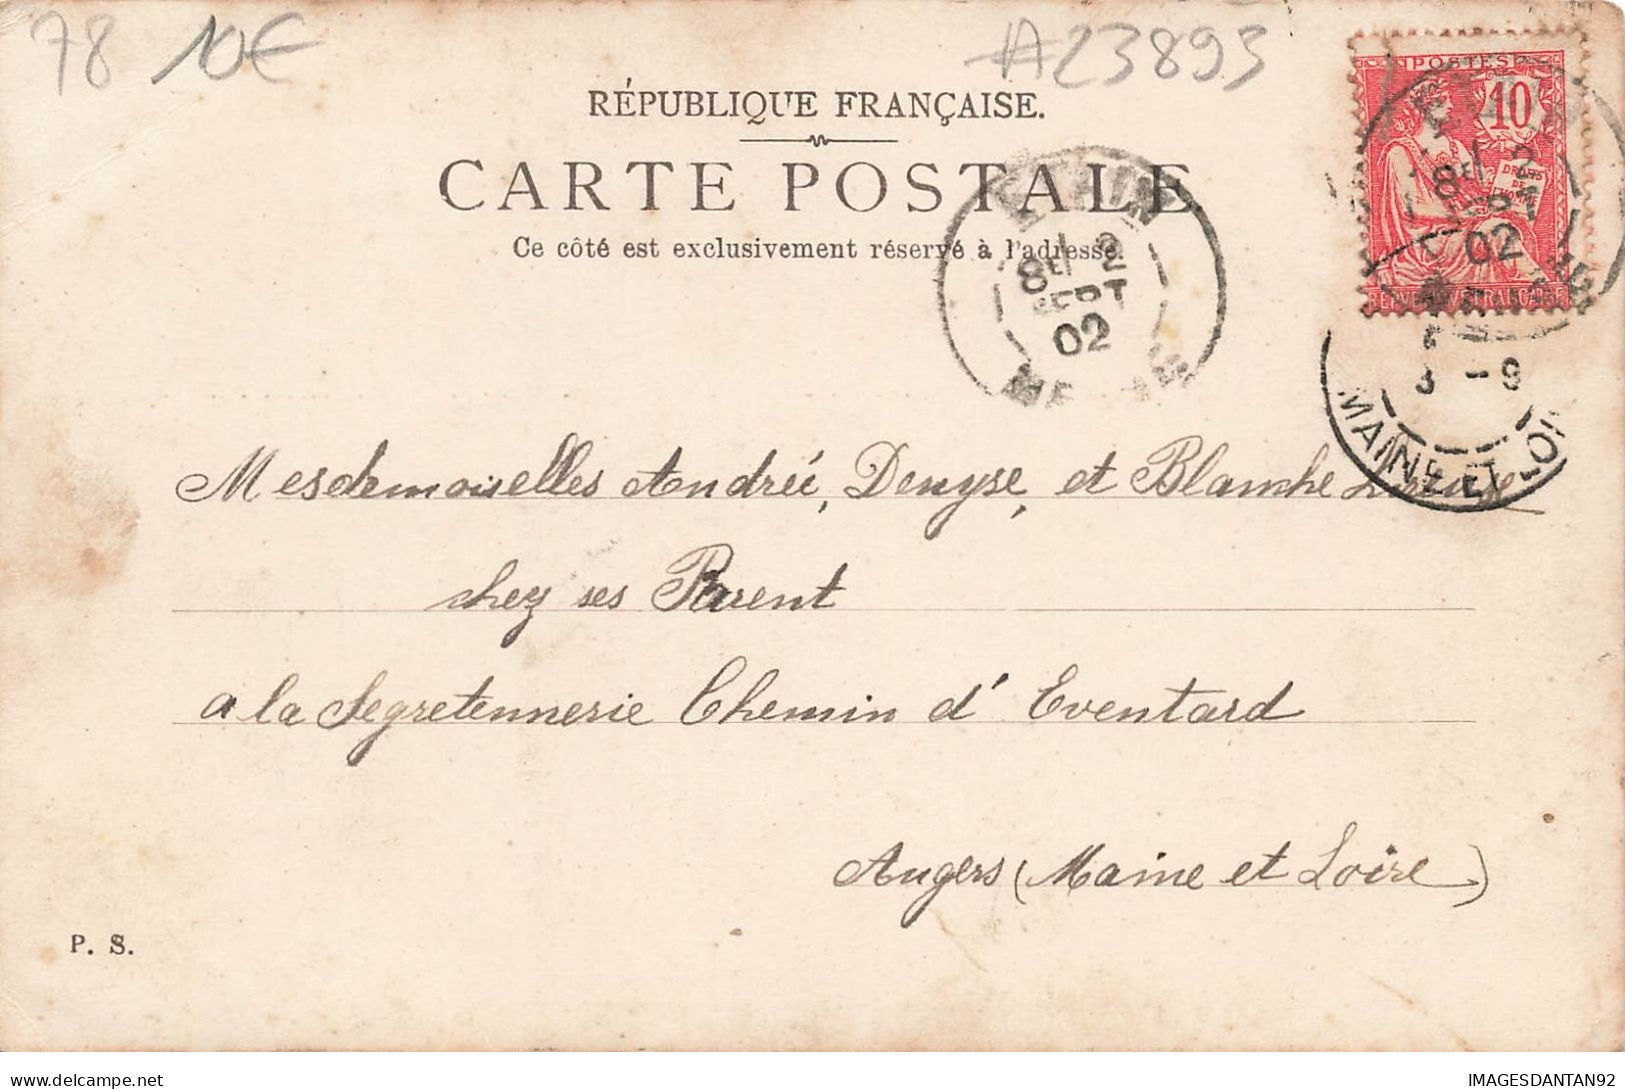 78 10€
A23893
RÉPUBLIQUE FRANÇAISE.
CARTE POSTALE
Ce côté est exclusivement réservé à l'adresse.
POSTES
10
DROITS DE L'HOMME
RÉPUBLIQUE FRANÇAISE
8E/ 2
SEPT
02
8E/ 2
SEPT
02
3 - 9
MAINE ET LOI
Mesdemoiselles Andréé, Denyse, et Blanche
chez ses Parent
a la Segretennerie Chemin d'Eventard
Angers (Maine et Loire)
P. S.
IMAGESDANTAN92